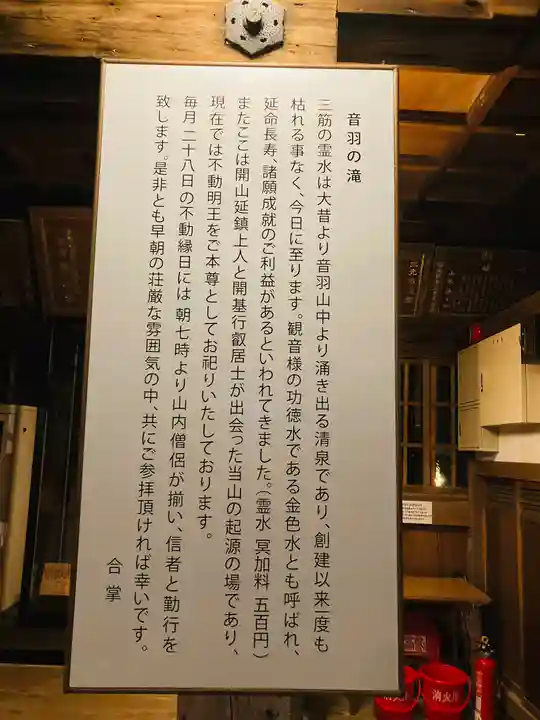 音羽の滝
三筋の霊水は大昔より音羽山中より涌き出る清泉であり、創建以来一度も
枯れる事なく、今日に至ります。観音様の功徳水である金色水とも呼ばれ、
延命長寿、諸願成就のご利益があるといわれてきました。(霊水 冥加料 五百円)
またここは開山延鎮上人と開基行叡居士が出会った当山の起源の場であり、
現在では不動明王をご本尊としてお祀りいたしております。
毎月二十八日の不動縁日には朝七時より山内僧侶が揃い、信者と勤行を
致します。是非とも早朝の荘厳な雰囲気の中、共にご参拝頂ければ幸いです。
合掌
消火用
消火用